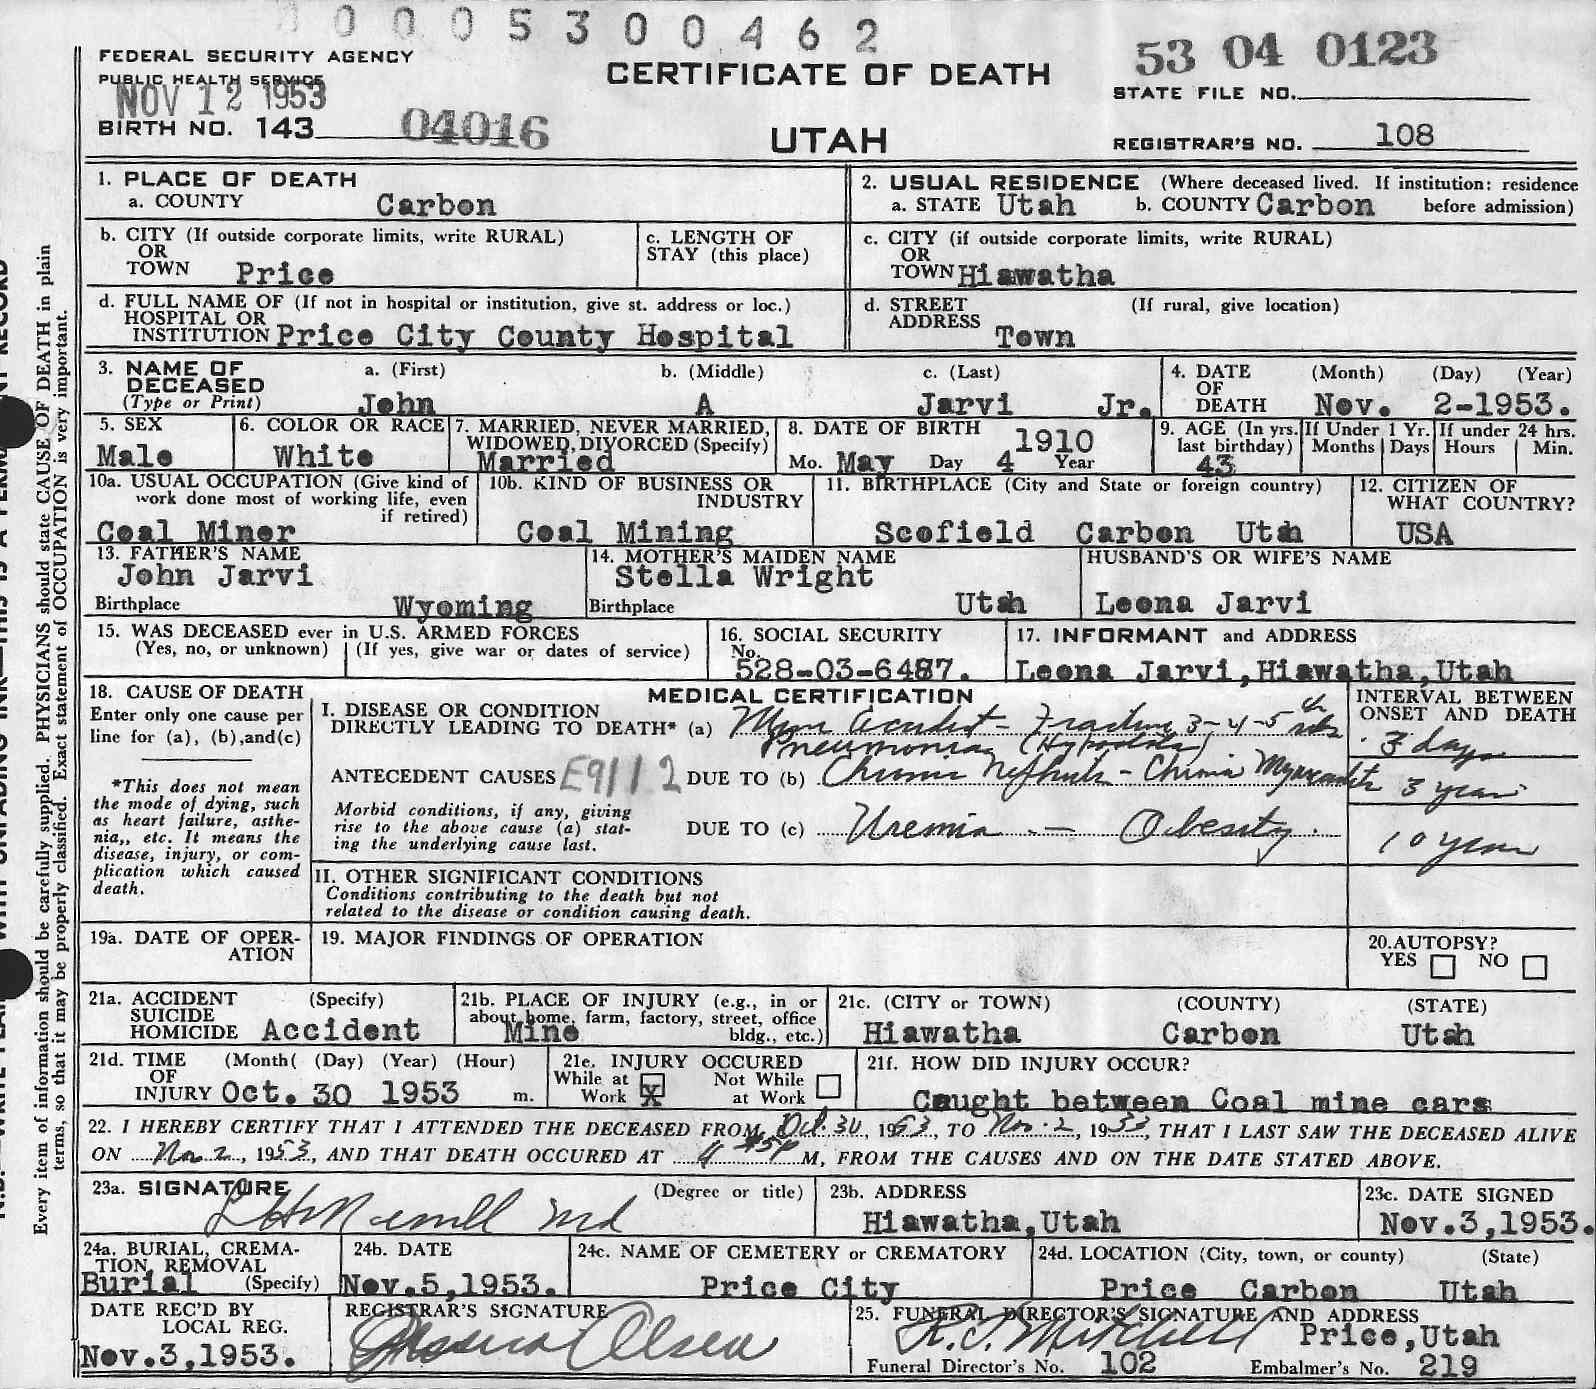 0 0 0 5 3 0 0 4 6 2
FEDERAL SECURITY AGENCY
PUBLIC HEALTH SERVICE
NOV 12 1953
CERTIFICATE OF DEATH
53 04 0123
STATE FILE NO.
BIRTH NO. 143 04016
UTAH
REGISTRAR'S NO. 108
1. PLACE OF DEATH
a. COUNTY Carbon
2. USUAL RESIDENCE (Where deceased lived. If institution: residence
a. STATE Utah b. COUNTY Carbon before admission)
b. CITY (If outside corporate limits, write RURAL)
OR
TOWN Price
c. LENGTH OF
STAY (this place)
c. CITY (if outside corporate limits, write RURAL)
OR
TOWN Hiawatha
d. FULL NAME OF (If not in hospital or institution, give st. address or loc.)
HOSPITAL OR
INSTITUTION Price City County Hospital
d. STREET (If rural, give location)
ADDRESS Town
3. NAME OF a. (First) b. (Middle) c. (Last)
DECEASED
(Type or Print) John A Jarvi Jr.
4. DATE (Month) (Day) (Year)
OF
DEATH Nov. 2-1953.
5. SEX
Male
6. COLOR OR RACE
White
7. MARRIED, NEVER MARRIED,
WIDOWED, DIVORCED (Specify)
Married
8. DATE OF BIRTH 1910
Mo. May Day 4 Year
9. AGE (In yrs.
last birthday)
43
If Under 1 Yr.
Months Days
If under 24 hrs.
Hours Min.
10a. USUAL OCCUPATION (Give kind of
work done most of working life, even
if retired)
Coal Miner
10b. KIND OF BUSINESS OR
INDUSTRY
Coal Mining
11. BIRTHPLACE (City and State or foreign country)
Scofield Carbon Utah
12. CITIZEN OF
WHAT COUNTRY?
USA
13. FATHER'S NAME
John Jarvi
Birthplace Wyoming
14. MOTHER'S MAIDEN NAME
Stella Wright
Birthplace Utah
HUSBAND'S OR WIFE'S NAME
Leona Jarvi
15. WAS DECEASED ever in U.S. ARMED FORCES
(Yes, no, or unknown) (If yes, give war or dates of service)
16. SOCIAL SECURITY
No.
528-03-6487.
17. INFORMANT and ADDRESS
Leona Jarvi, Hiawatha, Utah
18. CAUSE OF DEATH
Enter only one cause per
line for (a), (b), and (c)
*This does not mean
the mode of dying, such
as heart failure, asthe-
nia,, etc. It means the
disease, injury, or com-
plication which caused
death.
MEDICAL CERTIFICATION
I. DISEASE OR CONDITION
DIRECTLY LEADING TO DEATH* (a) Mine Accident - Fracture 3-4-5th ribs
Pneumonia (Hypostatic)
ANTECEDENT CAUSES E9112 DUE TO (b) Chronic Nephritis - Chronic Myocarditis
Morbid conditions, if any, giving
rise to the above cause (a) stat-
ing the underlying cause last.
DUE TO (c) Uremia - Obesity.
INTERVAL BETWEEN
ONSET AND DEATH
3 days
3 years
10 years
II. OTHER SIGNIFICANT CONDITIONS
Conditions contributing to the death but not
related to the disease or condition causing death.
19a. DATE OF OPER-
ATION
19. MAJOR FINDINGS OF OPERATION
20. AUTOPSY?
YES NO
21a. ACCIDENT (Specify)
SUICIDE
HOMICIDE Accident
21b. PLACE OF INJURY (e.g., in or
about home, farm, factory, street, office
bldg., etc.)
Mine
21c. (CITY or TOWN) (COUNTY) (STATE)
Hiawatha Carbon Utah
21d. TIME (Month( (Day) (Year) (Hour)
OF
INJURY Oct. 30 1953 m.
21e. INJURY OCCURED
While at Work X Not While at Work
21f. HOW DID INJURY OCCUR?
Caught between Coal mine cars
22. I HEREBY CERTIFY THAT I ATTENDED THE DECEASED FROM Oct. 30, 1953, TO Nov. 2, 1953, THAT I LAST SAW THE DECEASED ALIVE
ON Nov. 2, 1953, AND THAT DEATH OCCURED AT 4 45P M, FROM THE CAUSES AND ON THE DATE STATED ABOVE.
23a. SIGNATURE (Degree or title)
Merrill md
23b. ADDRESS
Hiawatha, Utah
23c. DATE SIGNED
Nov.3,1953.
24a. BURIAL, CREMA-
TION, REMOVAL
Burial (Specify)
24b. DATE
Nov.5,1953.
24c. NAME OF CEMETERY or CREMATORY
Price City
24d. LOCATION (City, town, or county) (State)
Price Carbon Utah
DATE REC'D BY
LOCAL REG.
Nov.3,1953.
REGISTRAR'S SIGNATURE
Olsen
25. FUNERAL DIRECTOR'S SIGNATURE AND ADDRESS
Mitchell Price, Utah
Funeral Director's No. 102 Embalmer's No. 219
Every item of information should be carefully supplied. PHYSICIANS should state CAUSE OF DEATH in plain
terms, so that it may be properly classified. Exact statement of OCCUPATION is very important.